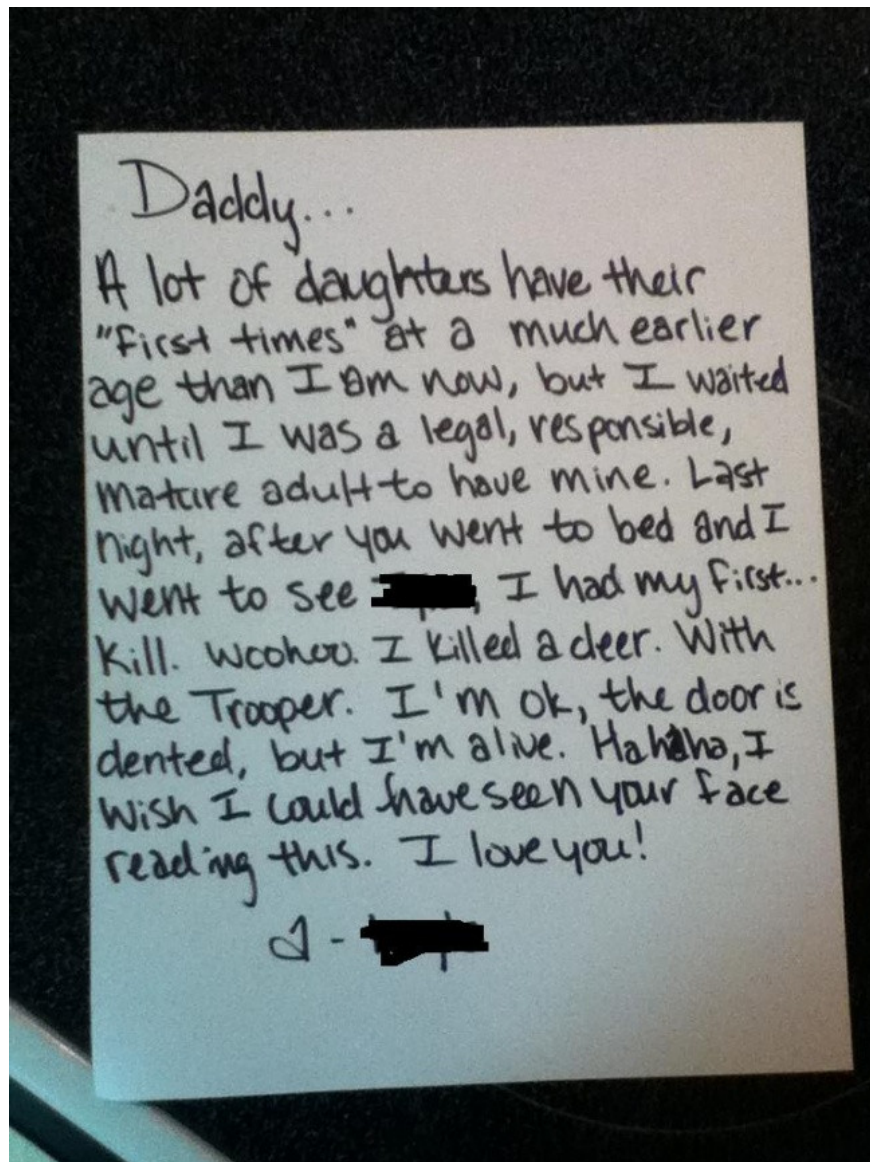 Daddy...
A lot of daughters have their
"first times" at a much earlier
age than I am now, but I waited
until I was a legal, responsible,
mature adult to have mine. Last
night, after you went to bed and I
went to see , I had my first...
kill. Woohoo. I killed a deer. With
the Trooper. I'm ok, the door is
dented, but I'm alive. Hahaha, I
wish I could have seen your face
reading this. I love you!
-